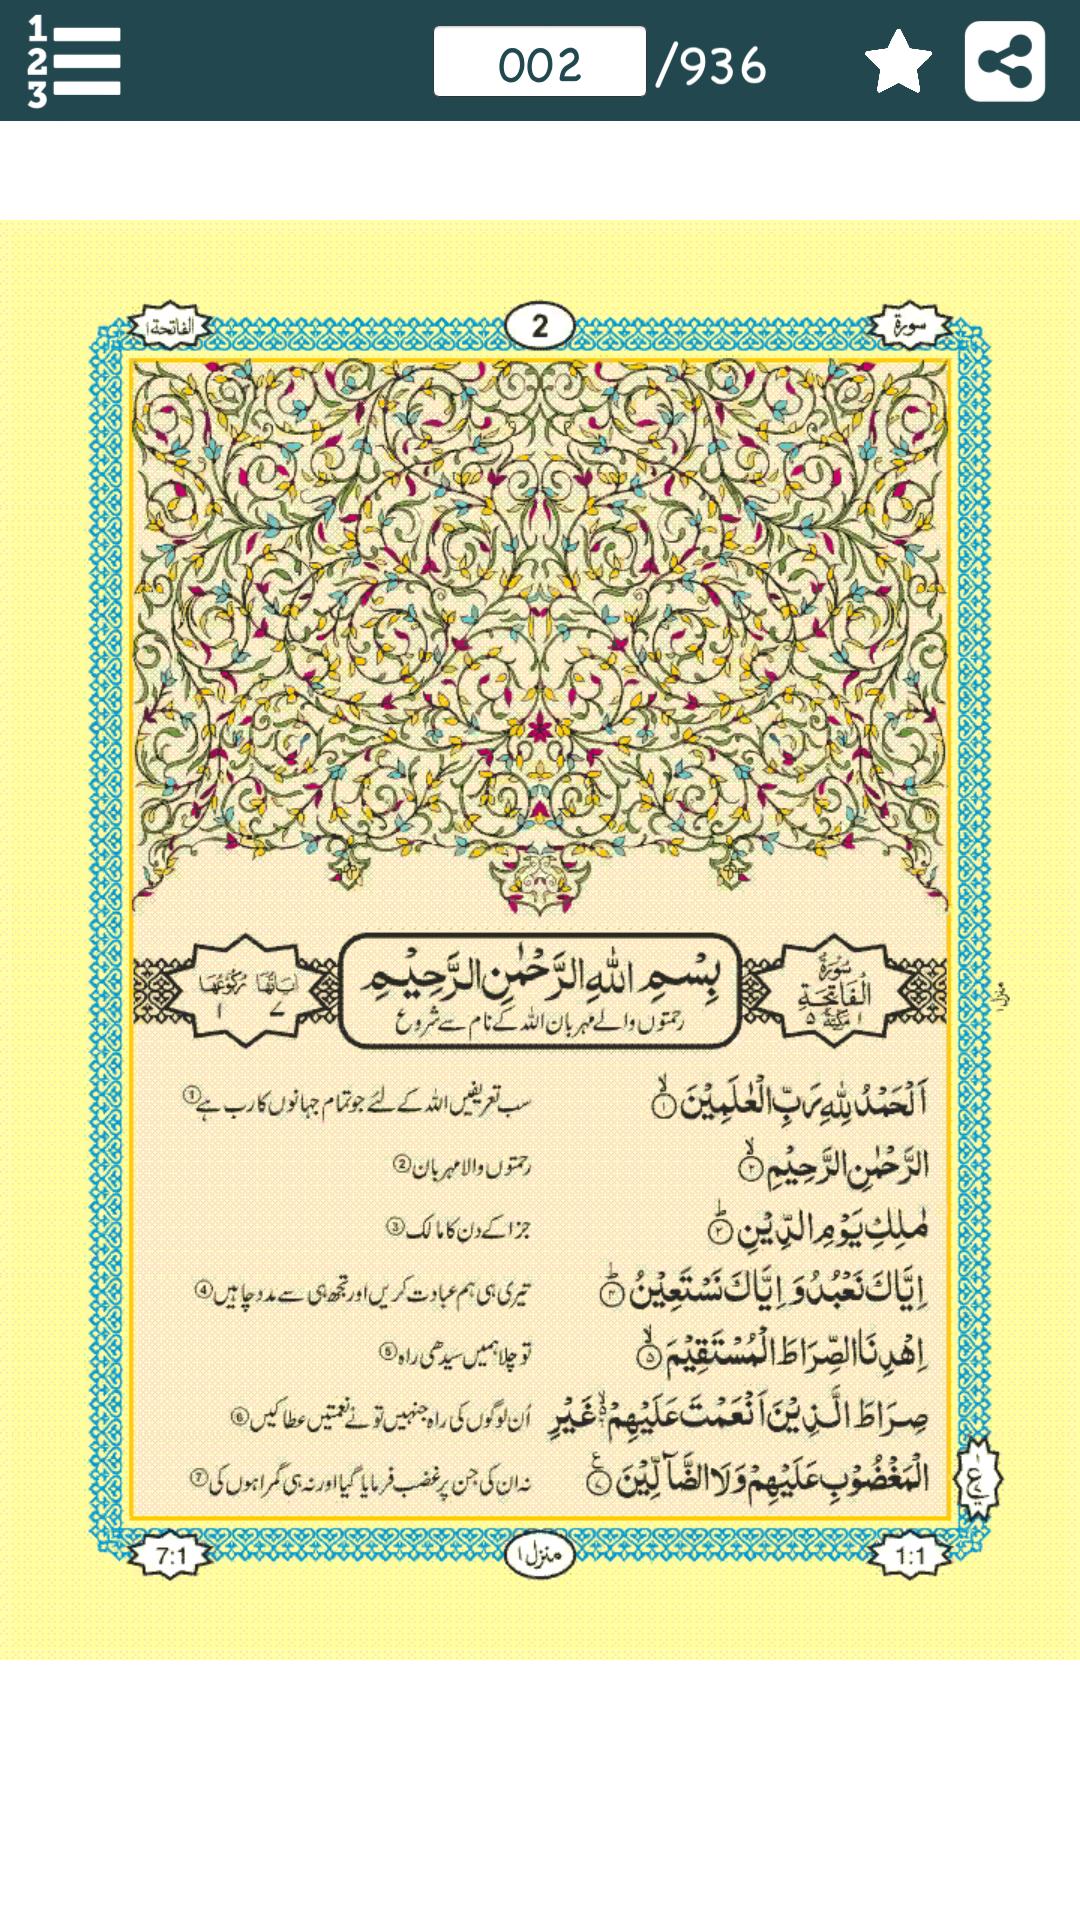 1
2
3
002 /936
سورة
2
الفاتحة ۱
سُوْرَةُ
الْفَاتِحَةِ
۱ مَكِّيَّةٌ ۵
بِسْمِ اللهِ الرَّحْمٰنِ الرَّحِيْمِ
رحمتوں والے مہربان اللہ کے نام سے شروع
اٰيَاتُهَا رُكُوْعُهَا
۷ ۱
اَلْحَمْدُ لِلّٰهِ رَبِّ الْعٰلَمِيْنَ ۙ﴿۱﴾ سب تعریفیں اللہ کے لئے جو تمام جہانوں کا رب ہے ①
الرَّحْمٰنِ الرَّحِيْمِ ۙ﴿۲﴾ رحمتوں والا مہربان ②
مٰلِكِ يَوْمِ الدِّيْنِ ؕ﴿۳﴾ جزا کے دن کا مالک ③
اِيَّاكَ نَعْبُدُ وَ اِيَّاكَ نَسْتَعِيْنُ ؕ﴿۴﴾ تیری ہی ہم عبادت کریں اور تجھ ہی سے مدد چاہیں ④
اِهْدِنَا الصِّرَاطَ الْمُسْتَقِيْمَ ۙ﴿۵﴾ تو چلا ہمیں سیدھی راہ ⑤
صِرَاطَ الَّذِيْنَ اَنْعَمْتَ عَلَيْهِمْ ۙ﴿۶﴾ غَيْرِ اُن لوگوں کی راہ جنہیں تو نے نعمتیں عطا کیں ⑥
الْمَغْضُوْبِ عَلَيْهِمْ وَلَا الضَّآلِّيْنَ ﴿۷﴾ نہ ان کی جن پر غضب فرمایا گیا اور نہ ہی گمراہوں کی ⑦
ع
1:1
منزل ۱
7:1